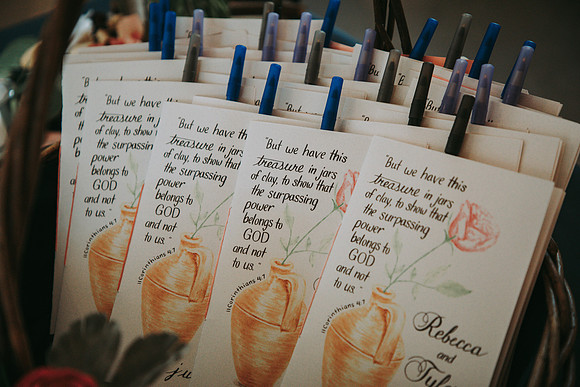 "But we have
"But we
"But we have this
treasure in jars
of clay, to show that
the surpassing
power
belongs to
GOD
and not
to us."
IICorinthians 4:7
"But we have this
treasure in jars
of clay, to show that
the surpassing
power
belongs to
GOD
and not
to us."
IICorinthians 4:7
"But we have this
treasure in jars
of clay, to show that
the surpassing
power
belongs to
GOD
and not
to us."
IICorinthians 4:7
"But we have this
treasure in jars
of clay, to show that
the surpassing
power
belongs to
GOD
and not
to us."
IICorinthians 4:7
Rebecca
and